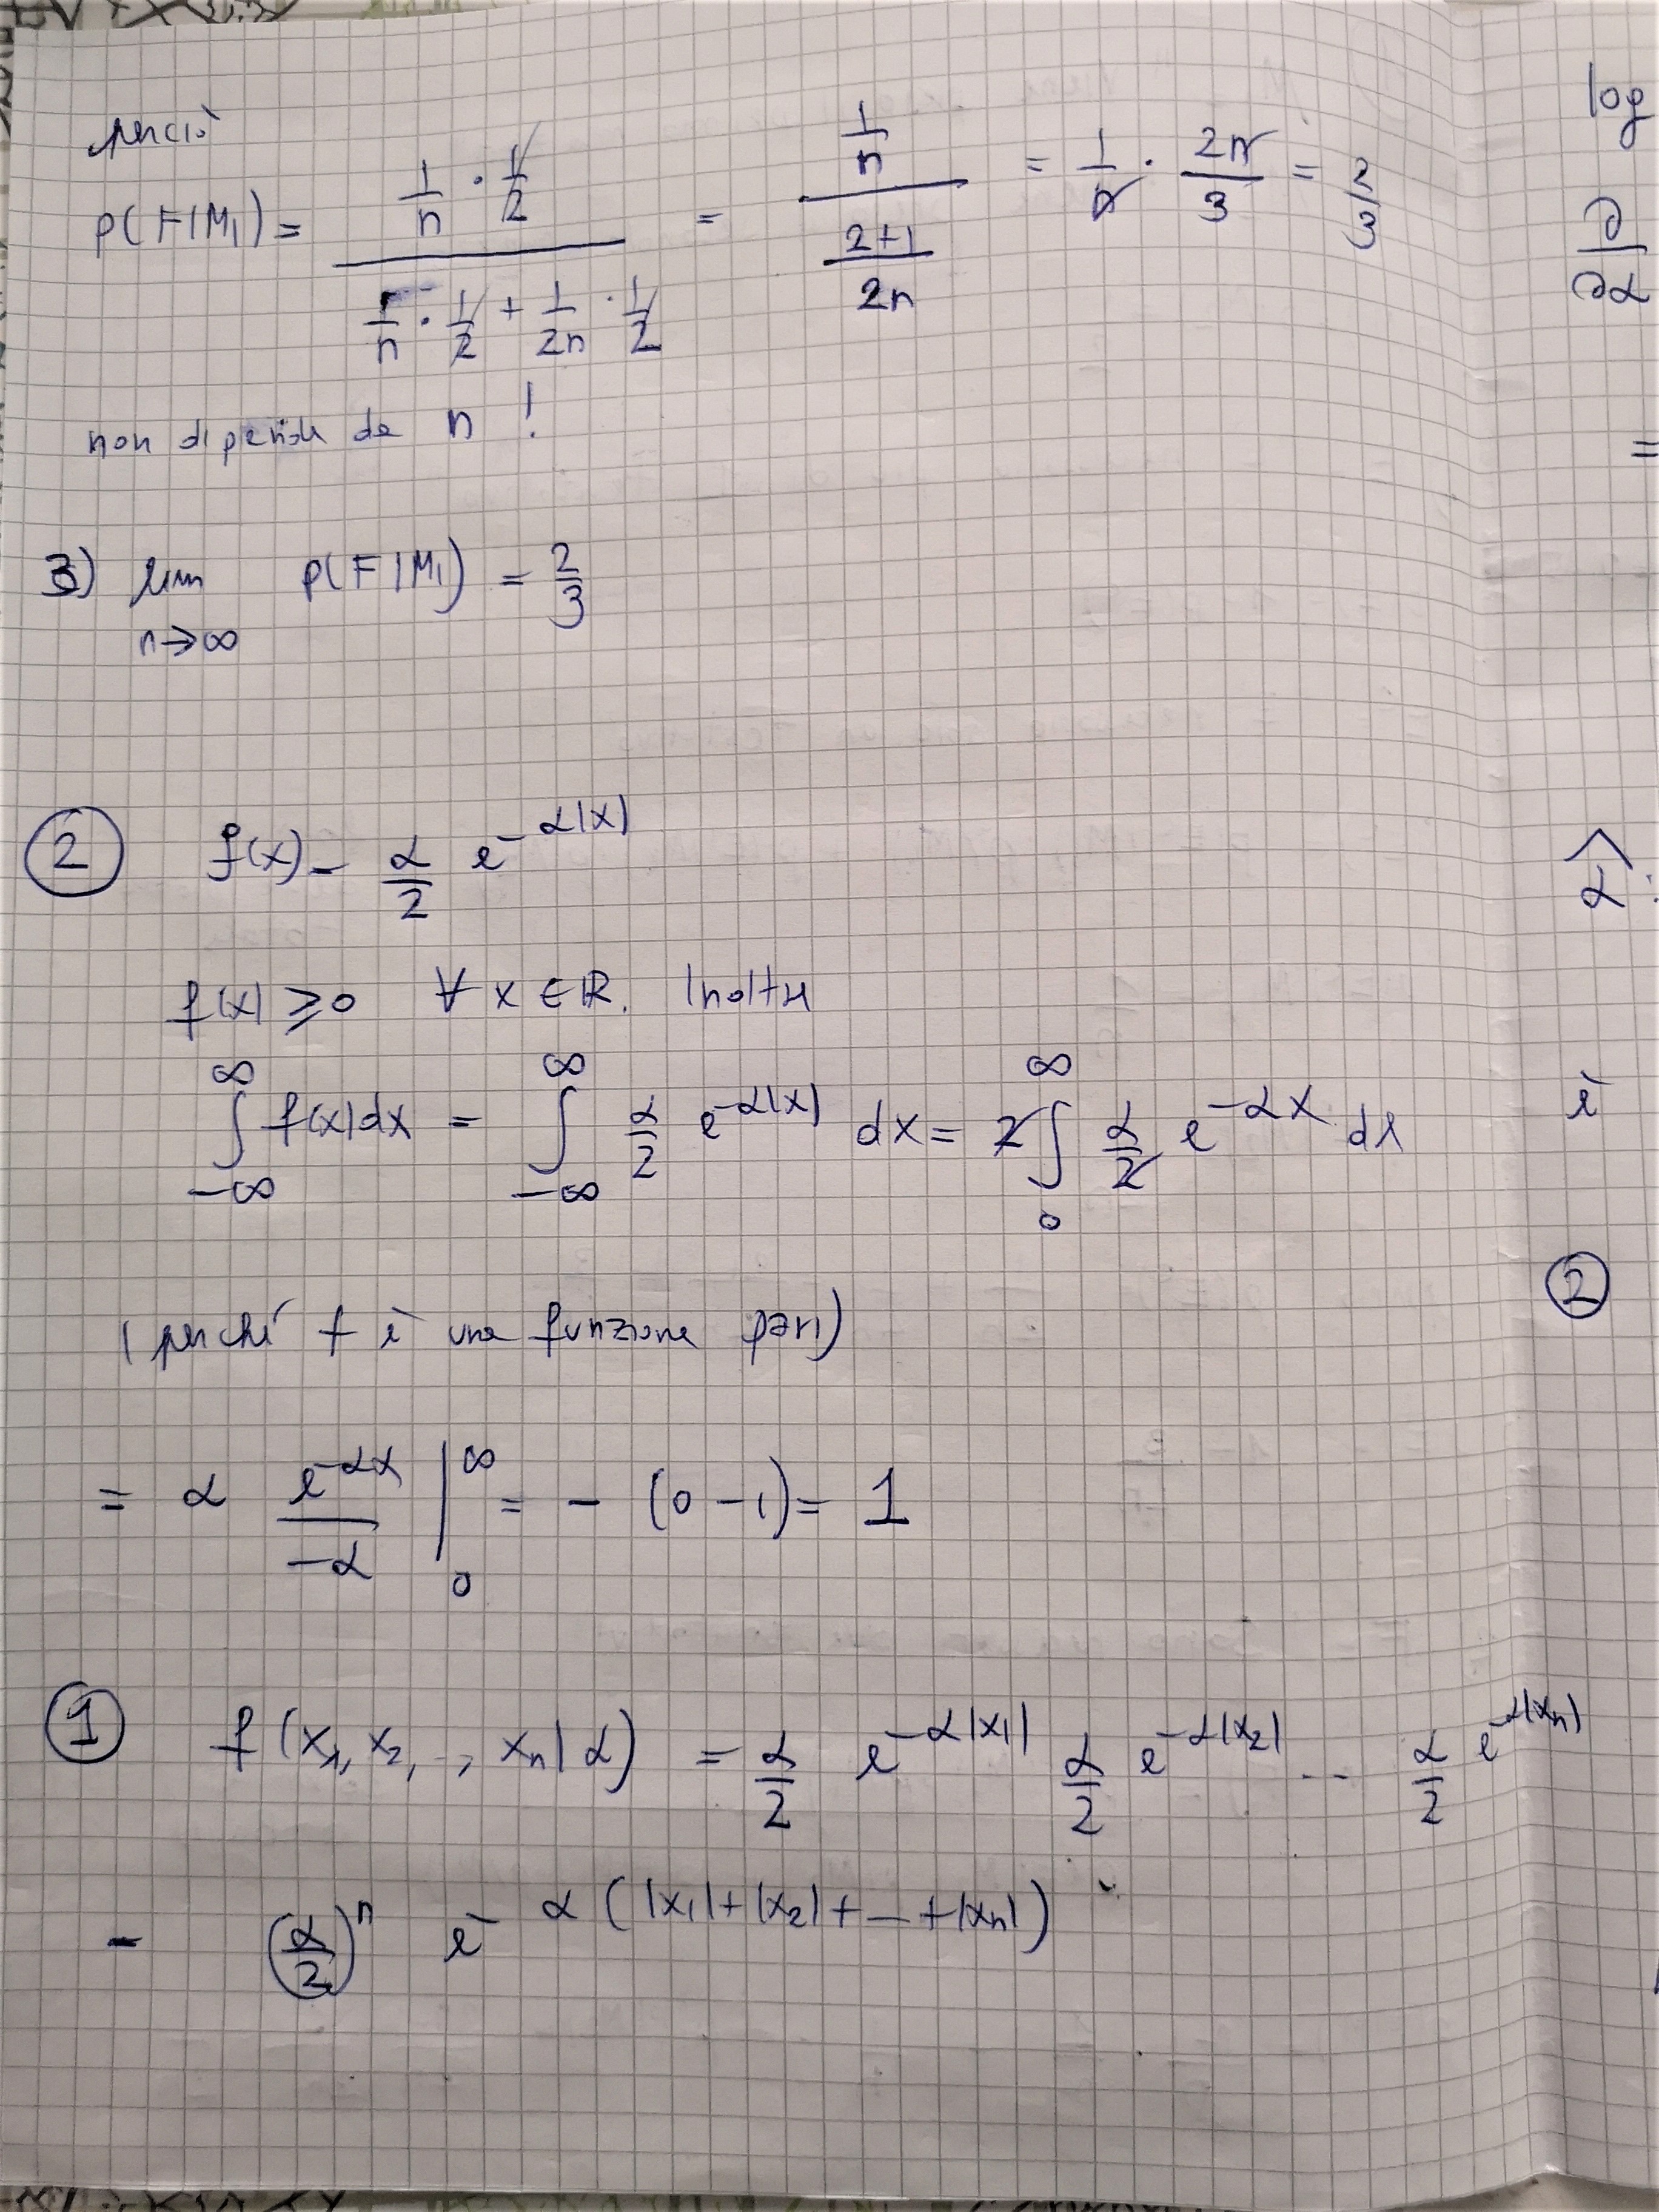 perciò
p(F|M₁) = (1/n · 1/2) / (1/n · 1/2 + 1/2n · 1/2) = (1/n) / ((2+1)/2n) = 1/n · 2n/3 = 2/3
non dipende da n !
3) lim n→∞ p(F|M₁) = 2/3
② f(x) = α/2 e^-α|x|
f(x) ≥ 0 ∀ x ∈ ℝ. Inoltre
∫_-∞^∞ f(x)dx = ∫_-∞^∞ α/2 e^-α|x| dx = 2∫_0^∞ α/2 e^-αx dx
(perché f è una funzione pari)
= α e^-αx / -α |_0^∞ = - (0 - 1) = 1
① f(x₁, x₂, .., xn | α) = α/2 e^-α|x₁| α/2 e^-α|x₂| -- α/2 e^-α|xn|
= (α/2)^n e^-α(|x₁|+|x₂|+--+|xn|)
log
∂/∂α
=
α̂ :
è
②